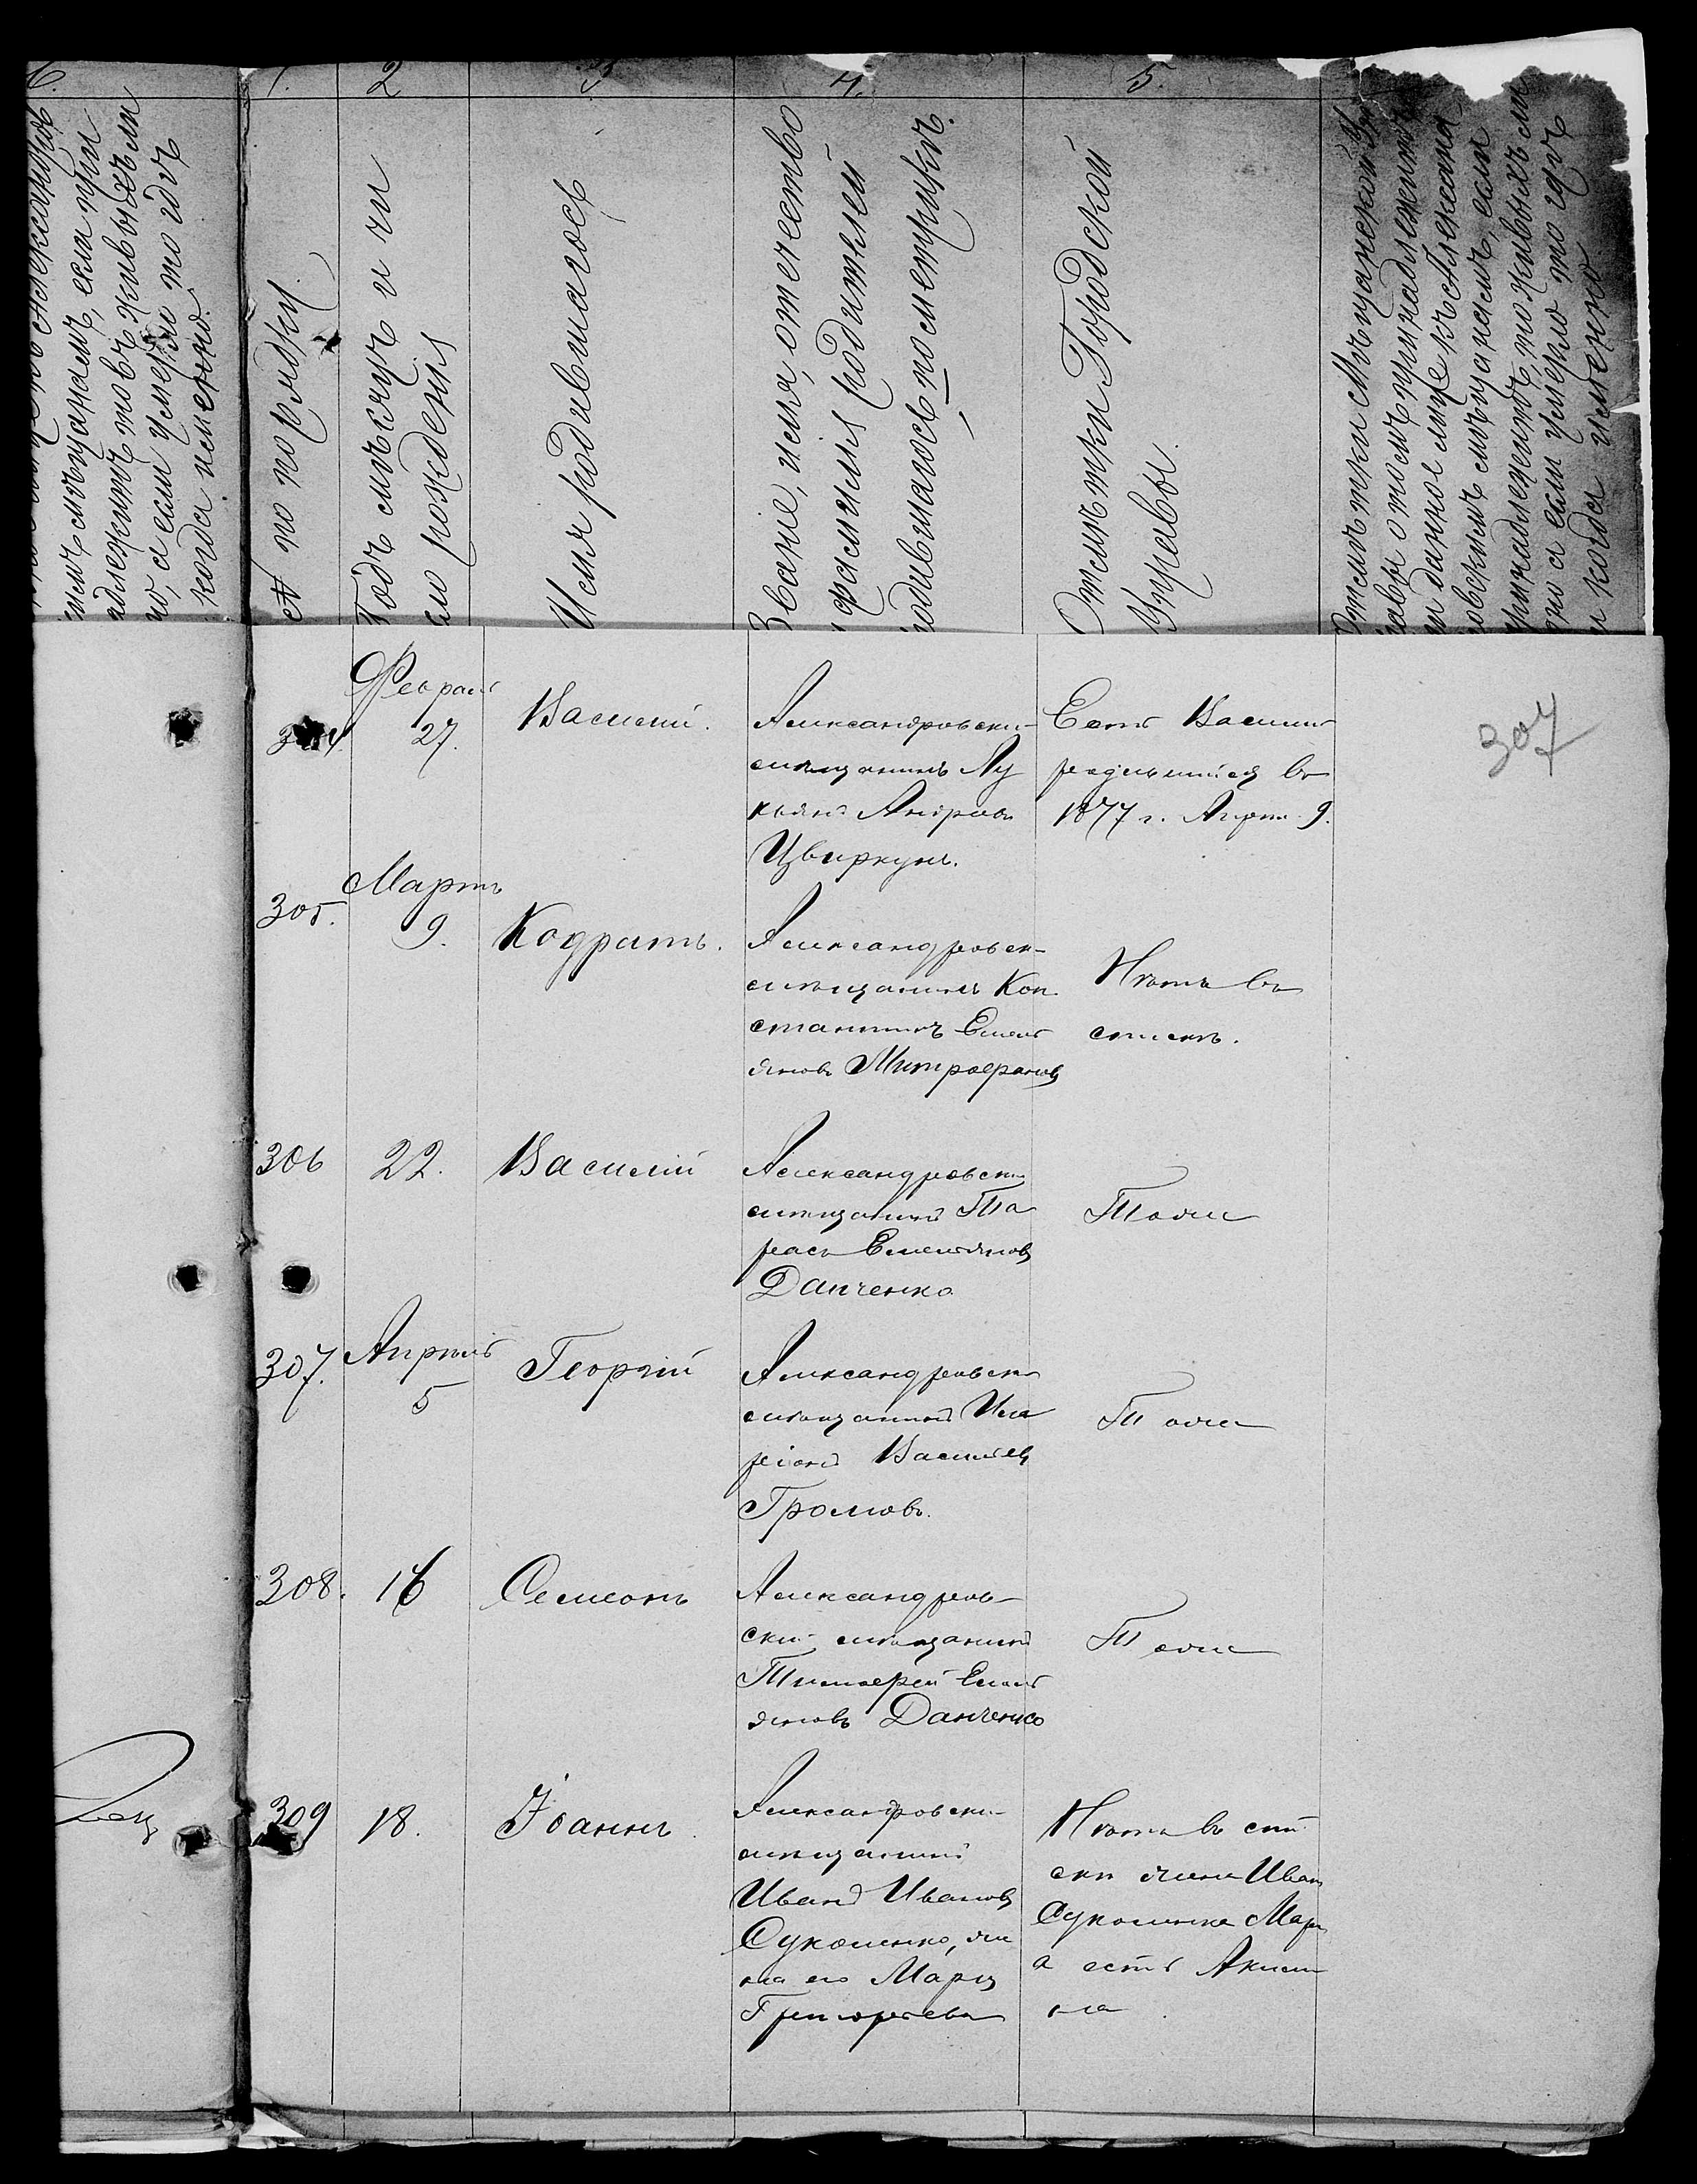 6. 1. 2 3 4. 5.
мъ мѣщанамъ, если при
надлежитъ то въ живыхъ ли
но, а если умерло то гдѣ
и когда именно.
№ по порядку
Годъ мѣсяцъ и чи
сло рожденія
Имя родившагося
Званіе, имя, отчество
и фамилія родителей
родившагося по метрикѣ.
Отмѣтки Городской
Управы.
Отмѣтки Мѣщанской Уп
равы о томъ принадлежитъ
ли данное лице къ Александ
ровскимъ мѣщанамъ, если
принадлежитъ, то живыхъ ли
оно а если умерло то гдѣ
и когда именно
307
304 Февраль
27.
Василій.
Александровскій
мѣщанинъ Лу
кьянъ Андреевъ
Цвиркунъ.
Есть Василій
родившійся въ
1877 г. Апрѣл. 9.
305. Мартъ
9.
Кодратъ.
Александровск
мѣщанинъ Кон
стантинъ Емель
яновъ Митрофановъ
Нѣтъ въ
спискѣ.
306 22. Василій
Александровскій
мѣщанинъ Та
расъ Емельяновъ
Данченко
Тоже
307. Апрѣль
5
Георгій
Александровскій
мѣщанинъ Ила
ріонъ Васильевъ
Громовъ.
Тоже
308. 16 Семеонъ
Александров
скій мѣщанинъ
Тимофей Емель
яновъ Данченко
Тоже
309 18. Іоаннъ
Александровскій
мѣщанинъ
Иванъ Ивановъ
Суколенко, же
на его Марія
Григорьева
Нѣтъ въ спи
скѣ жена Ивана
Суколенка Марі
а есть Акили
на